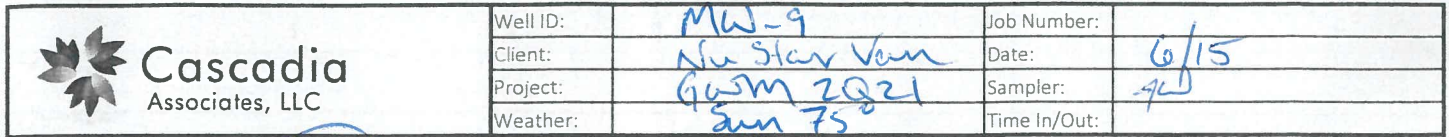 Cascadia
Associates, LLC
Well ID: MW-9 Job Number:
Client: Nu Star Van Date: 6/15
Project: GWM 2Q21 Sampler:
Weather: Sun 75° Time In/Out: